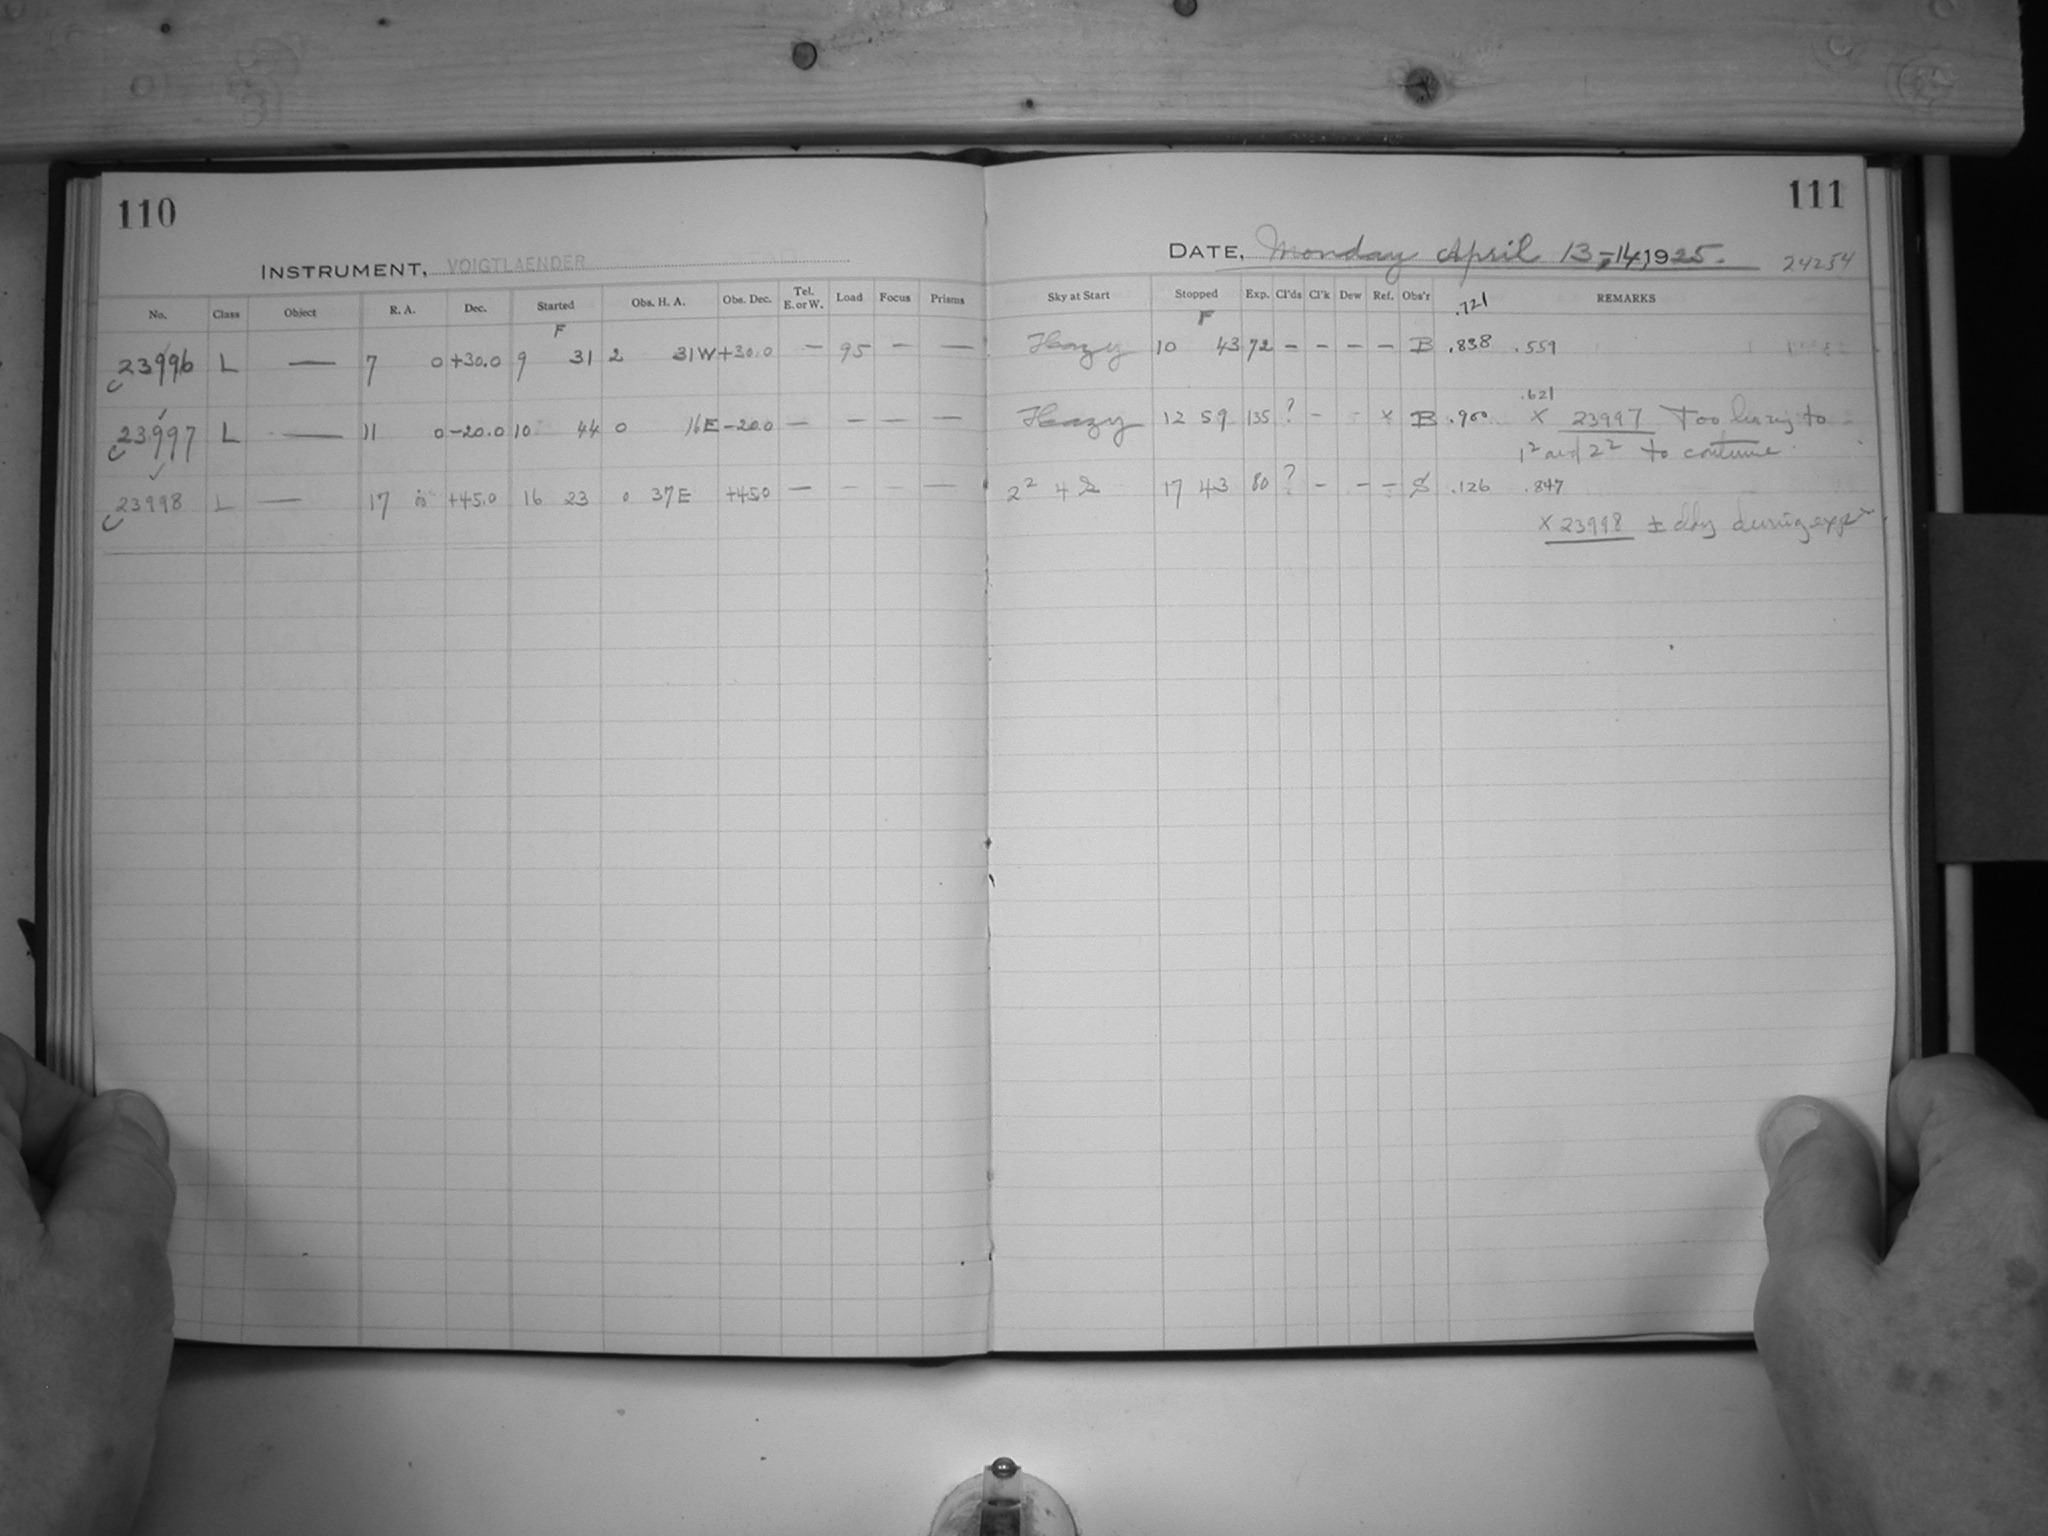 110
INSTRUMENT, VOIGTLAENDER
No. Class Object R. A. Dec. Started Obs. H. A. Obs. Dec. Tel. E. or W. Load Focus Prisms
F
23996 L — 7 0 +30.0 9 31 2 31W +30.0 — 95 — —
23997 L — 11 0 -20.0 10 44 0 16E -20.0 — — — —
23998 L — 17 0 +45.0 16 23 0 37E +45.0 — — — —
111
DATE, Monday April 13-14, 1925. 24254
Sky at Start Stopped Exp. Cl'ds Cl'k Dew Ref. Obs'r REMARKS
F .721
Hazy 10 43 72 – – – – B .838 .559
.621
Hazy 12 59 135 ? – - x B .900 x 23997 Too hazy to
1² and 2² to continue
2² 4 17 43 80 ? – – – S .126 .847
x 23998 ± during exp